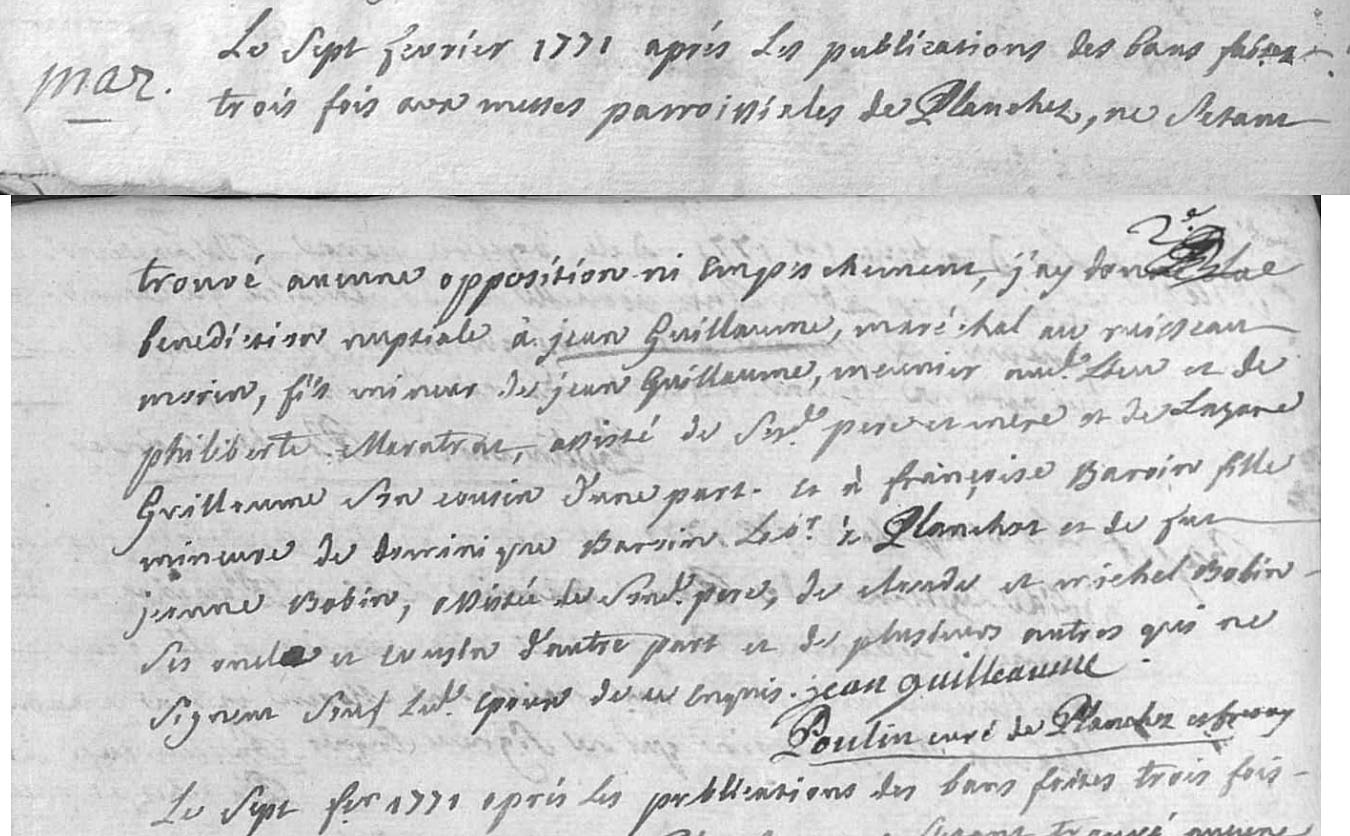 mar.
Le Sept fevrier 1771 aprés Les publications des bans faites
trois fois aux messes parroissiales de Planchez, ne Setant
2.e
trouvé aucune opposition ni Empeschement, j'ay donné la
benediction nuptiale à jean Guillaume, maréchal au ruisseau
morin, fils mineur de jean Guillaume, meunier aud. Lieu et de
philiberte Maratrat, assisté de Sesd. pere et mere et de Lazare
Guillaume Son cousin d'une part. et à françoise Baroin fille
mineure de dominique Baroin Labr. à Planchez et de fut
jeanne Bobin, assistée de Sond. pere, de claude et michel Bobin
Ses oncle et cousin d'autre part et de plusieurs autres qui ne
Signent Sauf Led. Epoux de ce Enquis. jean guilleaume
Poulin curé de Planchez et
Le Sept fer 1771 aprés Les publications des bans faites trois fois
trouvé aucune